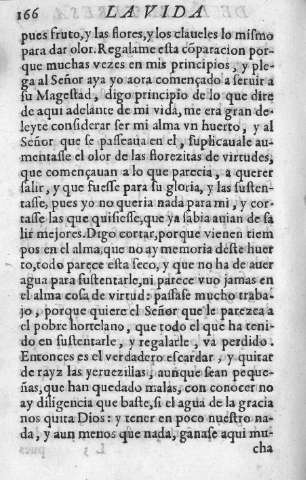 166 LA VIDA
pues fruto, y las flores, y los claueles lo mismo
para dar olor. Regalame esta cõparacion por-
que muchas vezes en mis principios, y ple-
ga al Señor aya yo aora començado a seruir a
su Magestad, digo principio de lo que dire
de aqui adelante de mi vida, me era gran de-
leyte considerar ser mi alma vn huerto, y al
Señor que se passeaua en el, suplicauale au-
mentasse el olor de las florezitas de virtudes,
que començauan a lo que parecia, a querer
salir, y que fuesse para su gloria, y las susten-
tasse, pues yo no queria nada para mi, y cor-
tasse las que quisiesse, que ya sabia auian de sa
lir mejores. Digo cortar, porque vienen tiem
pos en el alma, que no ay memoria deste huer
to, todo parece esta seco, y que no ha de auer
agua para sustentarle, ni parece vuo jamas en
el alma cosa de virtud: passase mucho traba-
jo, porque quiere el Señor que le parezca a
el pobre hortelano, que todo el que ha teni-
do en sustentarle, y regalarle, va perdido.
Entonces es el verdadero escardar, y quitar
de rayz las yeruezillas, aunque sean peque-
ñas, que han quedado malas, con conocer no
ay diligencia que baste, si el agua de la gracia
nos quita Dios: y tener en poco nuestro na-
da, y aun menos que nada, ganase aqui mu-
cha